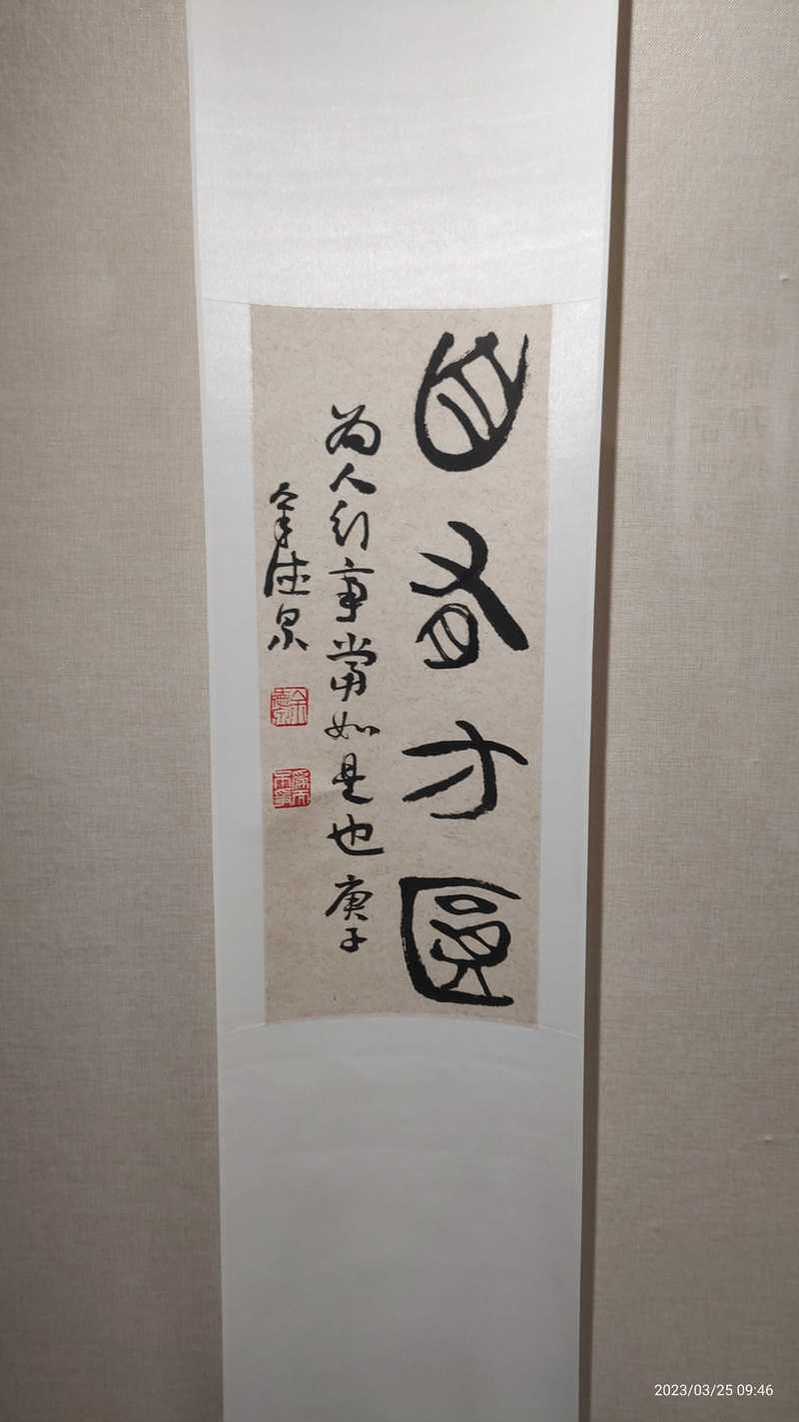 自有方圆
为人行事當如是也 庚子
余德泉
2023/03/25 09:46